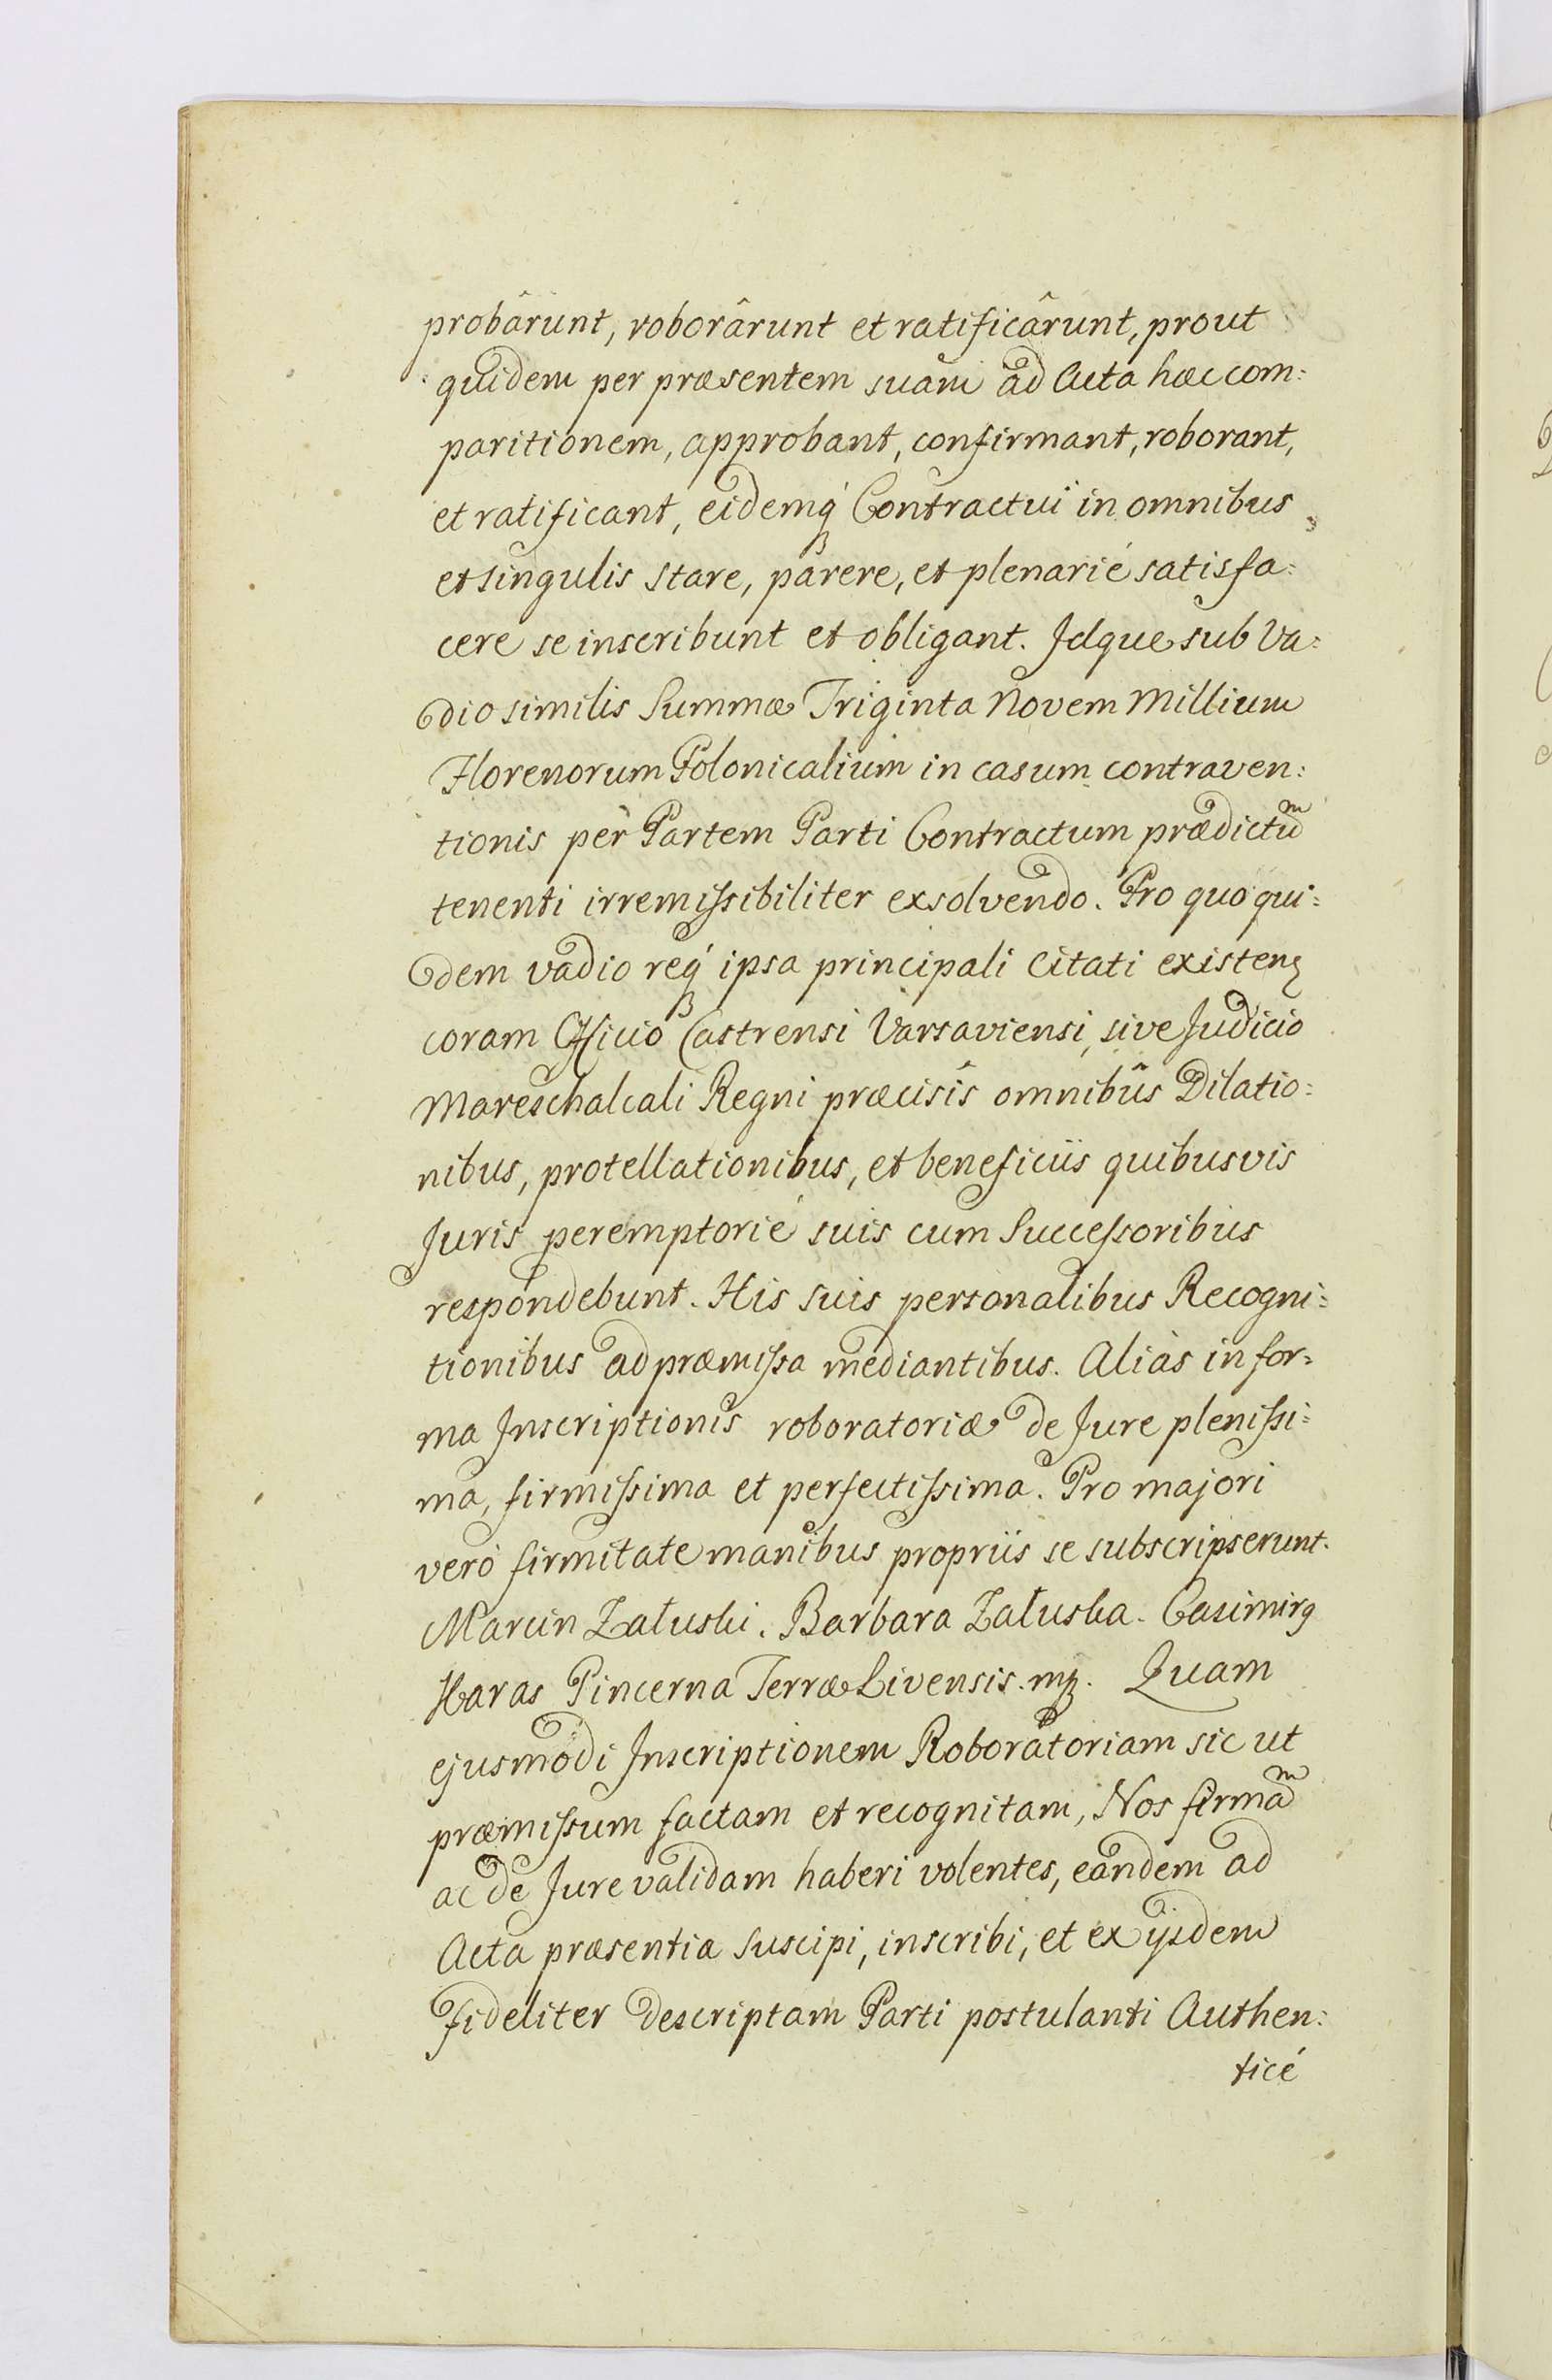 probârunt, roborârunt et ratificârunt, prout
quidem per præsentem suam ad Acta hæc com:
paritionem, approbant, confirmant, roborant,
et ratificant, eidemq́ꝫ Contractui in omnibus
et singulis stare, parere, et plenarié satisfa:
cere se inscribunt et obligant. Idque sub Va:
dio similis Summæ Triginta Novem Millium
Florenorum Polonicalium in casum contraven:
tionis per Partem Parti Contractum prædictuᵐ
tenenti irremissibiliter exsolvendo. Pro quo qui:
dem vadio req́ꝫ ipsa principali Citati existenꝫ
coram Officio Castrensi Varsaviensi, sive Judicio
Mareschalcali Regni præcisîs omnibûs Dilatio:
nibus, protellationibus, et beneficiis quibusvis
Juris peremptorié suis cum Successoribus
respondebunt. His suis personalibus Recogni:
tionibus ad præmissa mediantibus. Aliàs in for:
ma Inscriptionis roboratoriæ de Jure plenissi:
ma, firmissima et perfectissima. Pro majori
verò firmitate manibus propriis se subscripserunt.
Marcin Załuski. Barbara Załuska. Casimirꝰ
Haras Pincerna Terræ Livensis. mp. Quam
ejusmodi Inscriptionem Roboratoriam sic ut
præmissum factam et recognitam, Nos firmaᵐ
ac de Jure validam haberi volentes, eandem ad
Acta præsentia suscipi, inscribi, et ex ijsdem
fideliter descriptam Parti postulanti Authen:
ticé